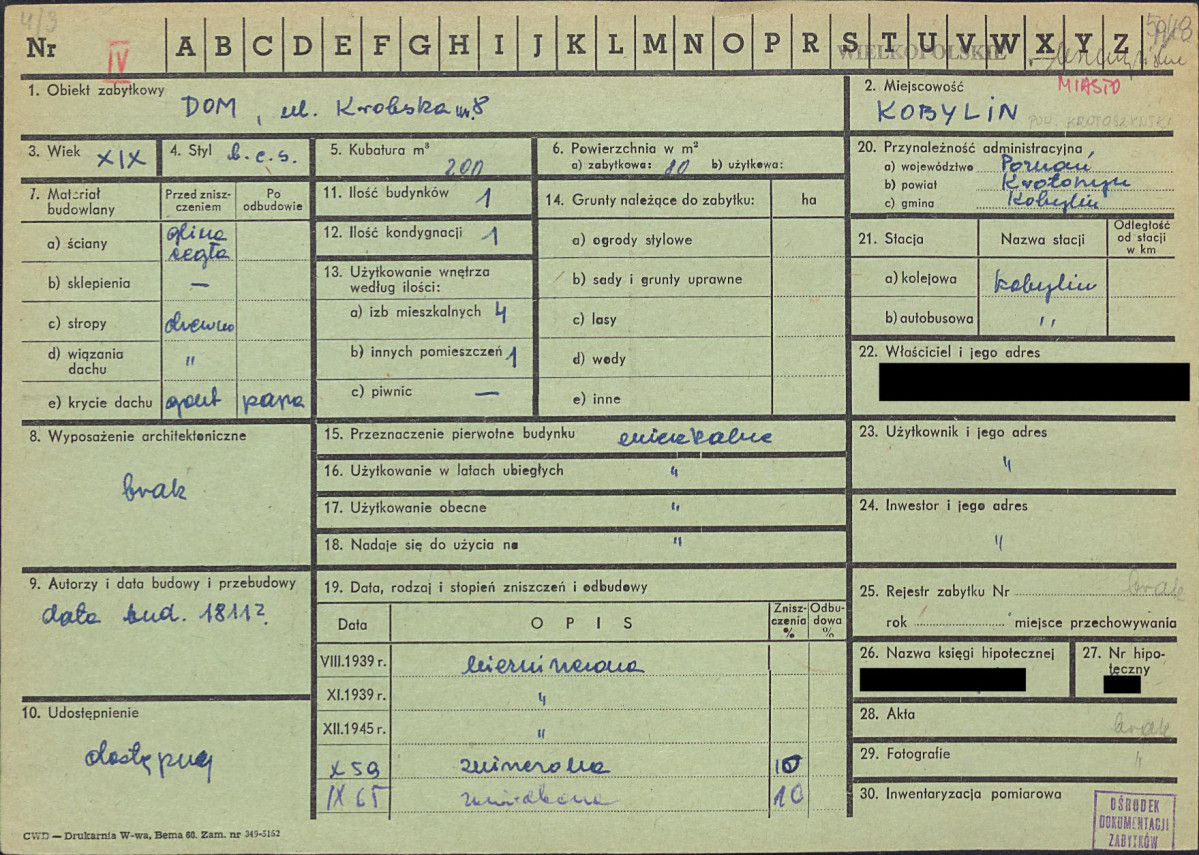 4/3
Nr
IV
A B C D E F G H I J K L M N O P R S T U V W X Y Z
WIELKOPOLSKIE
1. Obiekt zabytkowy
DOM, ul. Krobska nr. 8
2. Miejscowość
MIASTO
KOBYLIN
POW. KROTOSZYŃSKI
3. Wiek XIX
4. Styl b. c. s.
5. Kubatura m³
200
6. Powierzchnia w m²
a) zabytkowa: 80 b) użytkowa:
20. Przynależność administracyjna
a) województwo Poznań
b) powiat Krotoszyn
c) gmina Kobylin
7. Materiał budowlany
Przed zniszczeniem
Po odbudowie
a) ściany glina cegła
b) sklepienia —
c) stropy drewno
d) wiązania dachu "
e) krycie dachu gont papa
11. Ilość budynków 1
12. Ilość kondygnacji 1
13. Użytkowanie wnętrza według ilości:
a) izb mieszkalnych 4
b) innych pomieszczeń 1
c) piwnic —
14. Grunty należące do zabytku: ha
a) ogrody stylowe
b) sady i grunty uprawne
c) lasy
d) wody
e) inne
21. Stacja
Nazwa stacji
Odległość od stacji w km
a) kolejowa Kobylin
b) autobusowa "
22. Właściciel i jego adres
8. Wyposażenie architektoniczne
brak
15. Przeznaczenie pierwotne budynku mieszkalne
16. Użytkowanie w latach ubiegłych "
17. Użytkowanie obecne "
18. Nadaje się do użycia na "
23. Użytkownik i jego adres
"
24. Inwestor i jego adres
"
9. Autorzy i data budowy i przebudowy
data bud. 1811?
10. Udostępnienie
dostępny
19. Data, rodzaj i stopień zniszczeń i odbudowy
Data
OPIS
Zniszczenia %
Odbudowa %
VIII.1939 r.
XI.1939 r. "
XII.1945 r. "
X 59 10
IX 65 10
25. Rejestr zabytku Nr brak
rok miejsce przechowywania
26. Nazwa księgi hipotecznej
27. Nr hipoteczny
28. Akta brak
29. Fotografie "
30. Inwentaryzacja pomiarowa
OŚRODEK
DOKUMENTACJI
ZABYTKÓW
CWD — Drukarnia W-wa, Bema 60. Zam. nr 349-5152